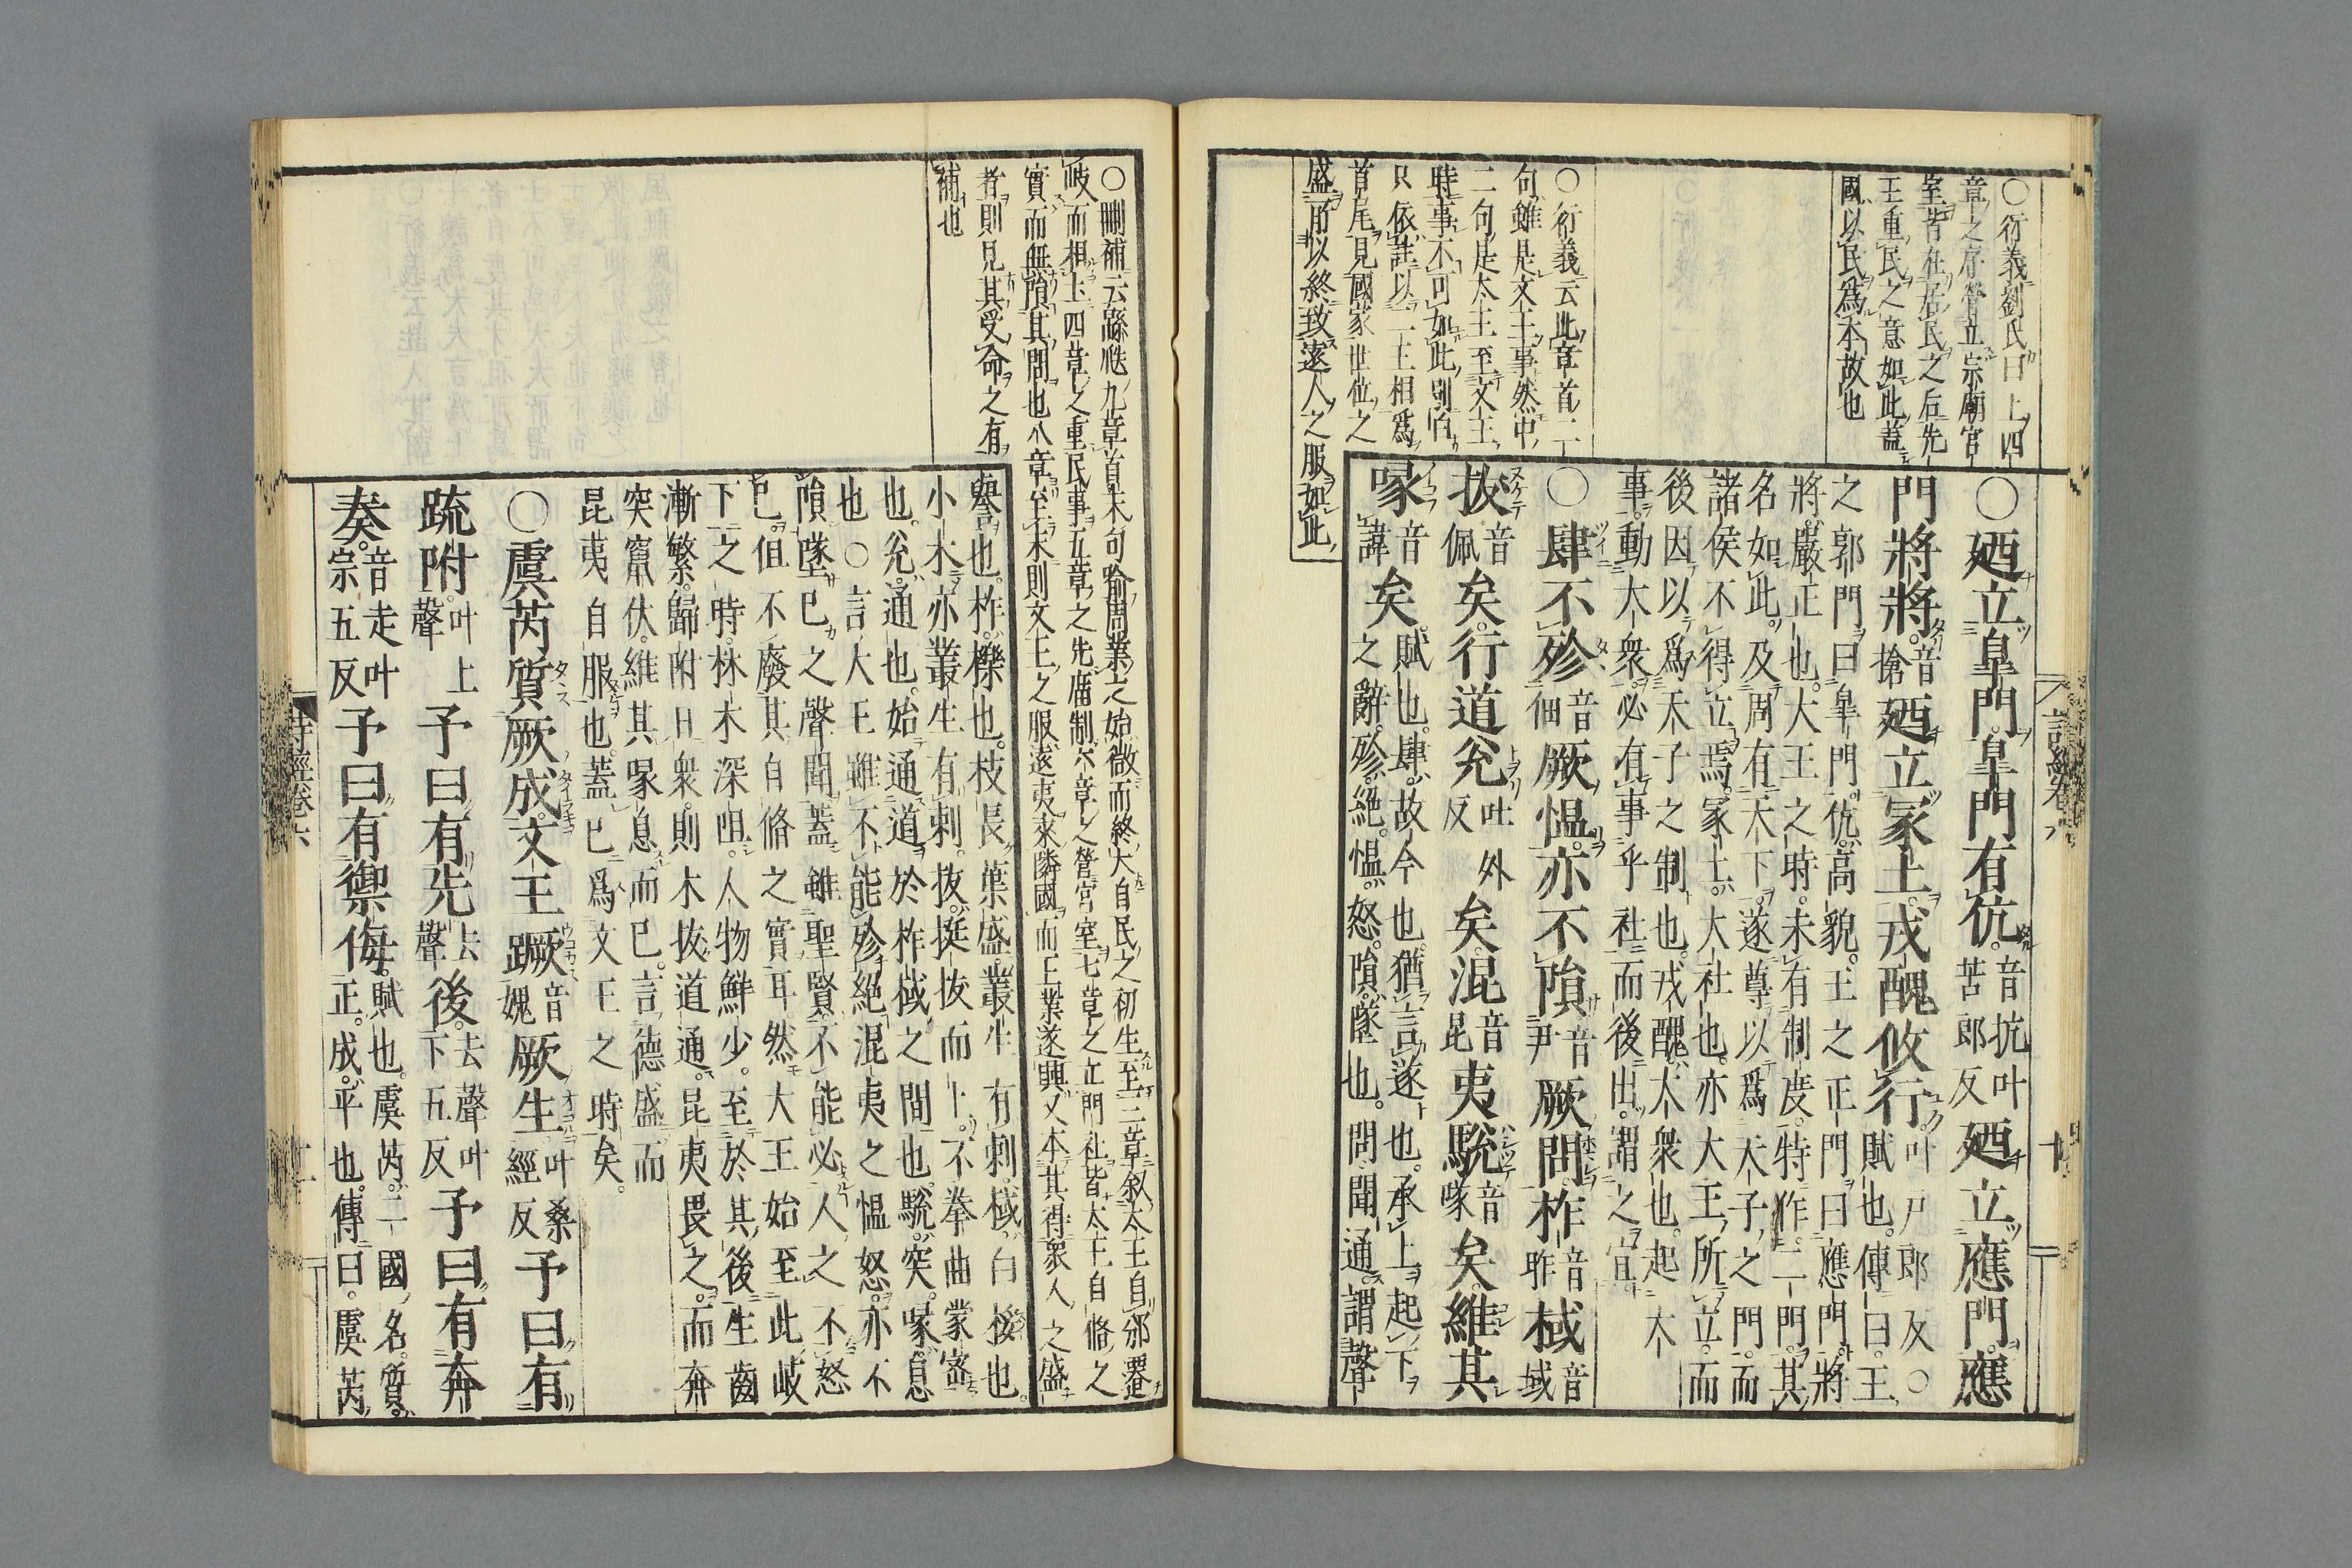 ○衍義劉氏曰上四
章之序營立宗廟宮
室皆在居民之后先
王重民之意如此蓋
國以民爲本故也
○衍義云此章首二
句雖是文王事然中
二句是太王至文王
時事不可如此別怕
只依註以二王相爲
首尾見國家世位之
盛所以終致遠人之服如此
○廼立皐門皐門有伉音抗叶苦郎反廼立應門應
門將將音搶廼立冢土戎醜攸行叶戸郎反○賦也傳曰王
之郭門曰皐門伉高貌王之正門曰應門將
將嚴正也大王之時未有制度特作二門其
名如此及周有天下遂尊以爲天子之門而
諸侯不得立焉冢土大社也亦大王所立而
後因以爲天子之制也戎醜大衆也起大
事動大衆必有事乎社而後出謂之宜
○肆不殄音佃厥慍亦不隕音尹厥問柞音昨棫音域
拔音佩矣行道兌吐外反矣混音昆夷駾音喙矣維其
喙音諱矣賦也肆故今也猶言遂也承上起下之辭殄絕慍怒隕墜也問聞通謂聲
詩經卷六
十
○刪補云緜緜九章首末句喻周業之始微而終大自民之初生至三章叙太王自邠遷
岐而相土四章之重民事五章之先庿制六章之營宮室七章之立門社皆太王自脩之
實而無隕其問也八章至末則文王之服遠夷來隣國而王業遂興又本其得衆人之盛
者則見其受命之有
補也
譽也柞櫟也枝長葉盛叢生有刺棫白桵也
小木亦叢生有刺拔挺拔而上不拳曲蒙密
也兌通也始通道於柞棫之間也駾突喙息
也○言大王雖不能殄絕混夷之慍怒亦不
隕墜已之聲聞蓋雖聖賢不能必人之不怒
已但不廢其自脩之實耳然大王始至此岐
下之時林木深阻人物鮮少至於其後生齒
漸繁歸附日衆則木拔道通昆夷畏之而奔
突竄伏維其喙息而已言德盛而
昆夷自服也蓋已爲文王之時矣
○虞芮質厥成文王蹶音媿厥生叶桑經反予曰有
疏附叶上聲予曰有先去聲後去聲叶下五反予曰有奔
奏音走叶宗五反予曰有禦侮賦也虞芮二國名質正成平也傳曰虞芮
詩經卷六
十一